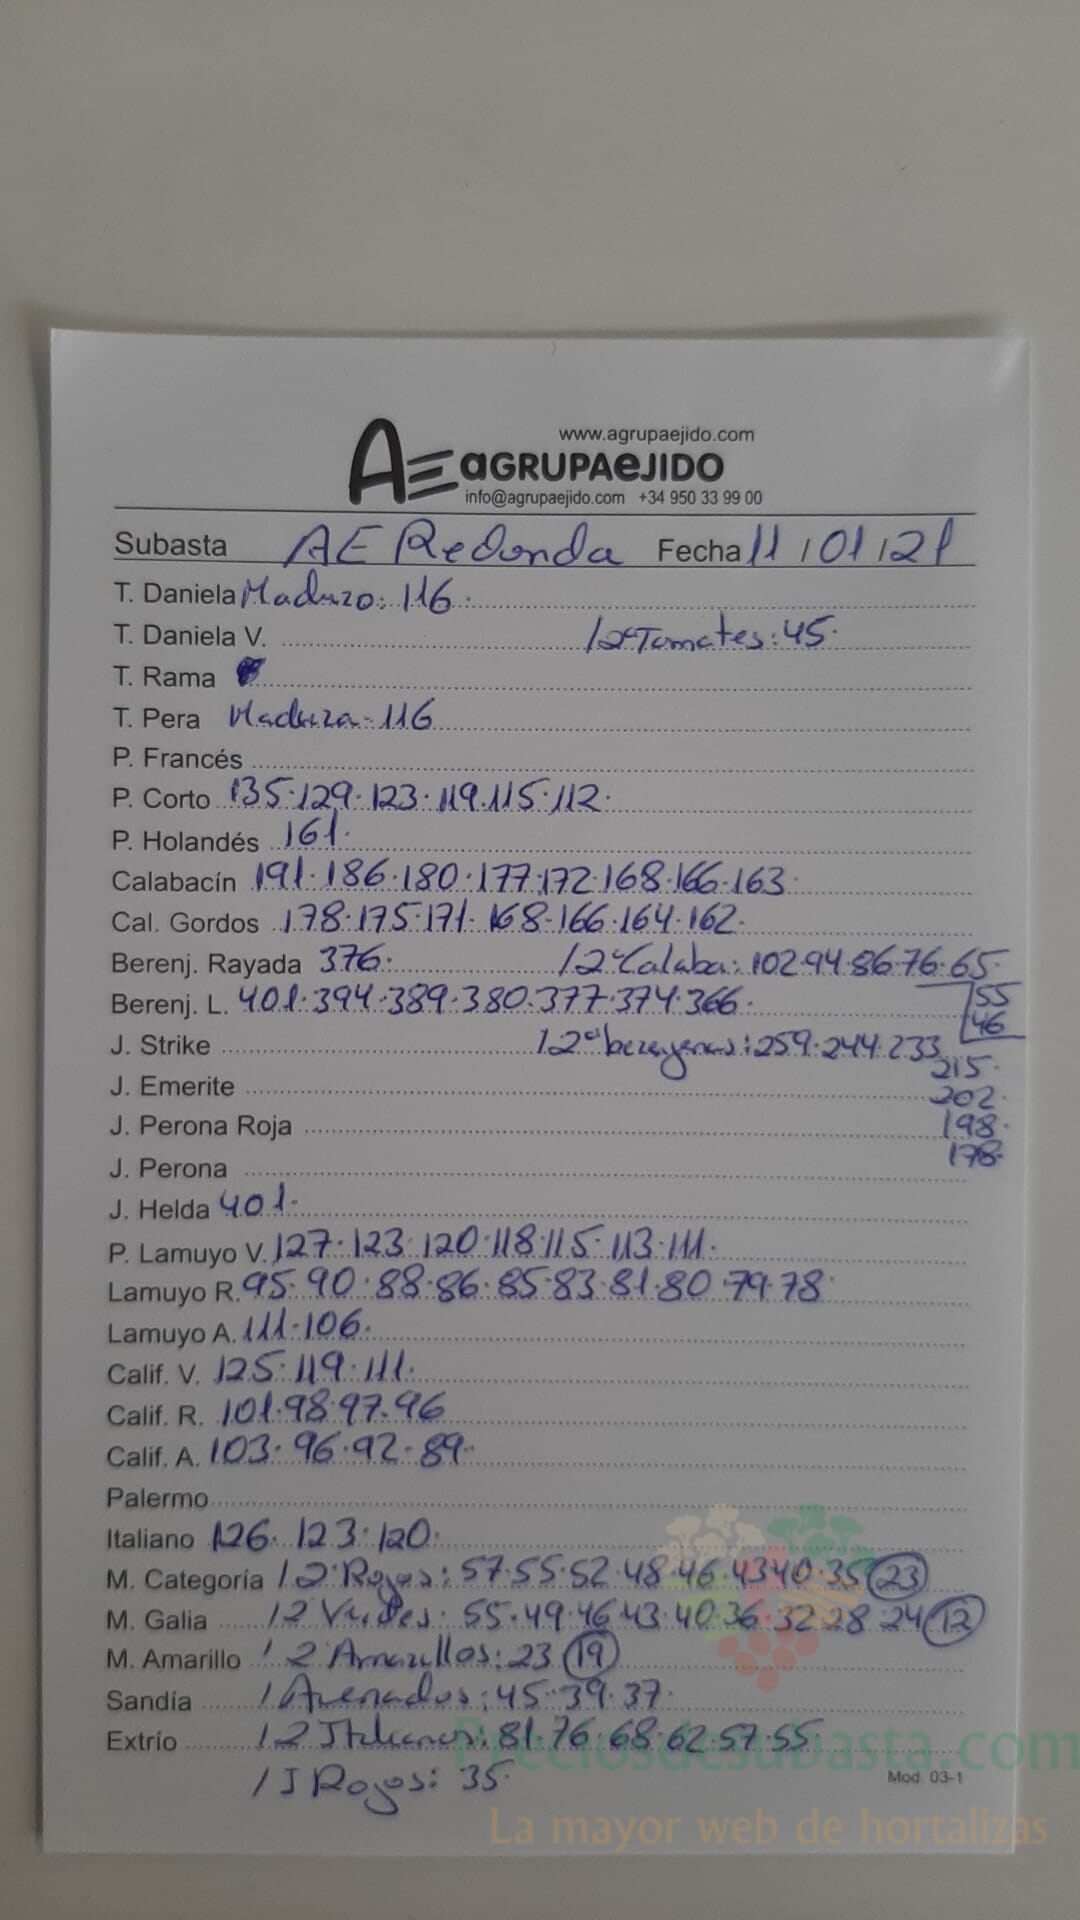 www.agrupaejido.com
AE aGRUPAeJIDO
info@agrupaejido.com +34 950 33 99 00
Subasta AE Redonda Fecha 11/01/21
T. Daniela Maduro: 116.
T. Daniela V. /2ªTomates: 45.
T. Rama
T. Pera Madura - 116
P. Francés
P. Corto 135·129·123·119·115·112·
P. Holandés 161·
Calabacín 191·186·180·177·172·168·166·163·
Cal. Gordos 178·175·171·168·166·164·162·
Berenj. Rayada 376· /2ªCalaba: 102·94·86·76·65·
55
Berenj. L. 401·394·389·380·377·374·366·
46
J. Strike /2ªberegenas: 259·244·233
215·
J. Emerite 202·
J. Perona Roja 198·
178·
J. Perona
J. Helda 401·
P. Lamuyo V. 127·123·120·118·115·113·111·
Lamuyo R. 95·90·88·86·85·83·81·80·79·78·
Lamuyo A. 111·106·
Calif. V. 125·119·111·
Calif. R. 101·98·97·96
Calif. A. 103·96·92·89·
Palermo
Italiano 126·123·120·
M. Categoría /2ªRojos: 57·55·52·48·46·43·40·35 23
M. Galia /2 Verdes: 55·49·46·43·40·36·32·28·24 12
M. Amarillo /2 Amarillos: 23 19
Sandía / Arenados: 45·39·37·
Extrío /2 Italianos: 81·76·68·62·57·55
/ J Rojos: 35·
Mod. 03-1
Preciosdesubasta.com
La mayor web de hortalizas